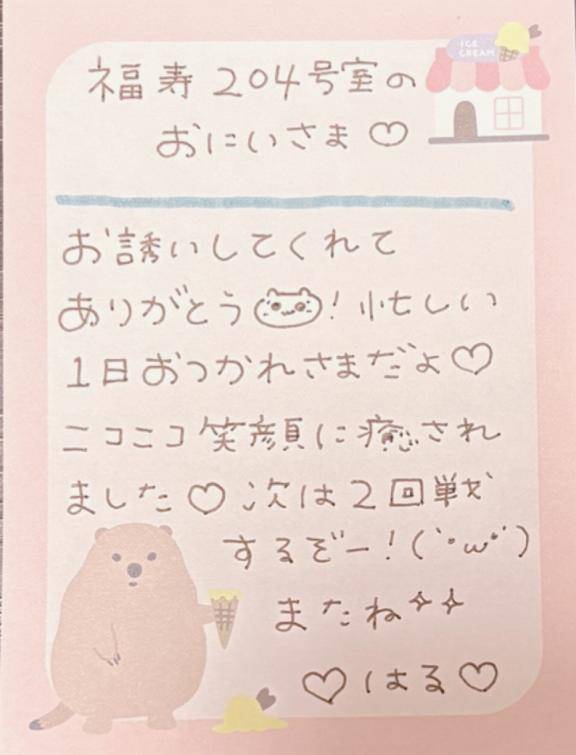 ICE
CREAM
福寿204号室の
おにいさま♡
お誘いしてくれて
ありがとう！忙しい
1日おつかれさまだよ♡
ニコニコ笑顔に癒され
ました♡次は2回戦
するぞー！(`･ω･´)
またね✧✧
♡はる♡